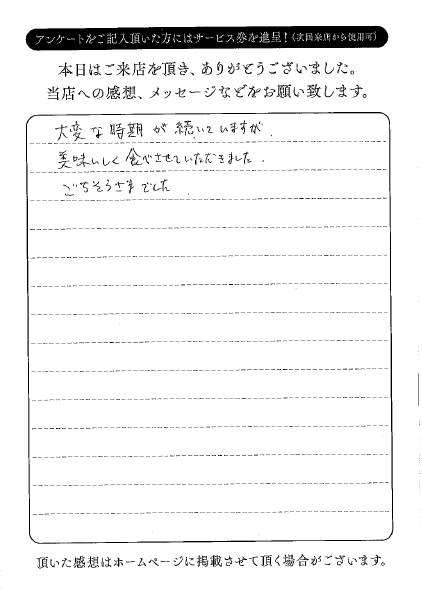 アンケートをご記入頂いた方にはサービス券を進呈！（次回来店から使用可）
本日はご来店を頂き、ありがとうございました。
当店への感想、メッセージなどをお願い致します。
大変な時期が続いていますが、
美味いしく食べさせていただきました。
ごちそうさまでした
頂いた感想はホームページに掲載させて頂く場合がございます。